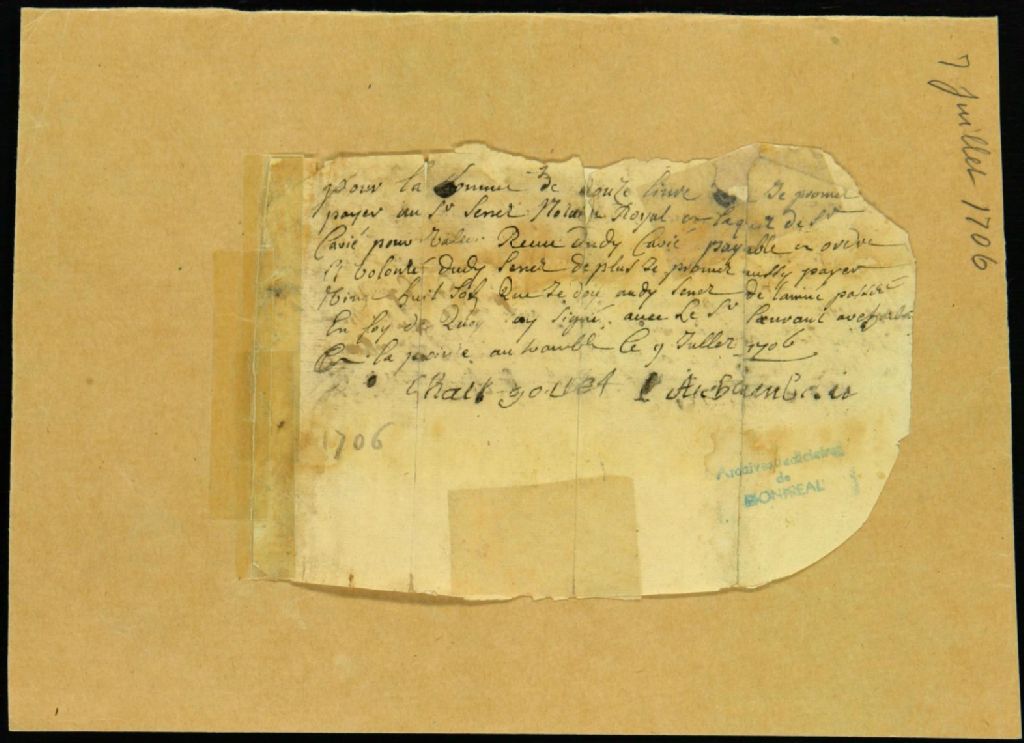 7 Juillet 1706
pour la somme de douze livre Je promet
payer au Sr Senet Notaire Royal en laquit de Sr
Cavié pour valeur Receue dudy Cavié payable en ordre
et volonté dudy Senet de plus Je promet aussy payer
vingt huit sols que Je doy audy Senet de lannée passée
En foy de quoy ay signé avec Le Sr
En la autramble le 9 Jullet 1706
1706
Archives Judiciaires
de
MONTREAL